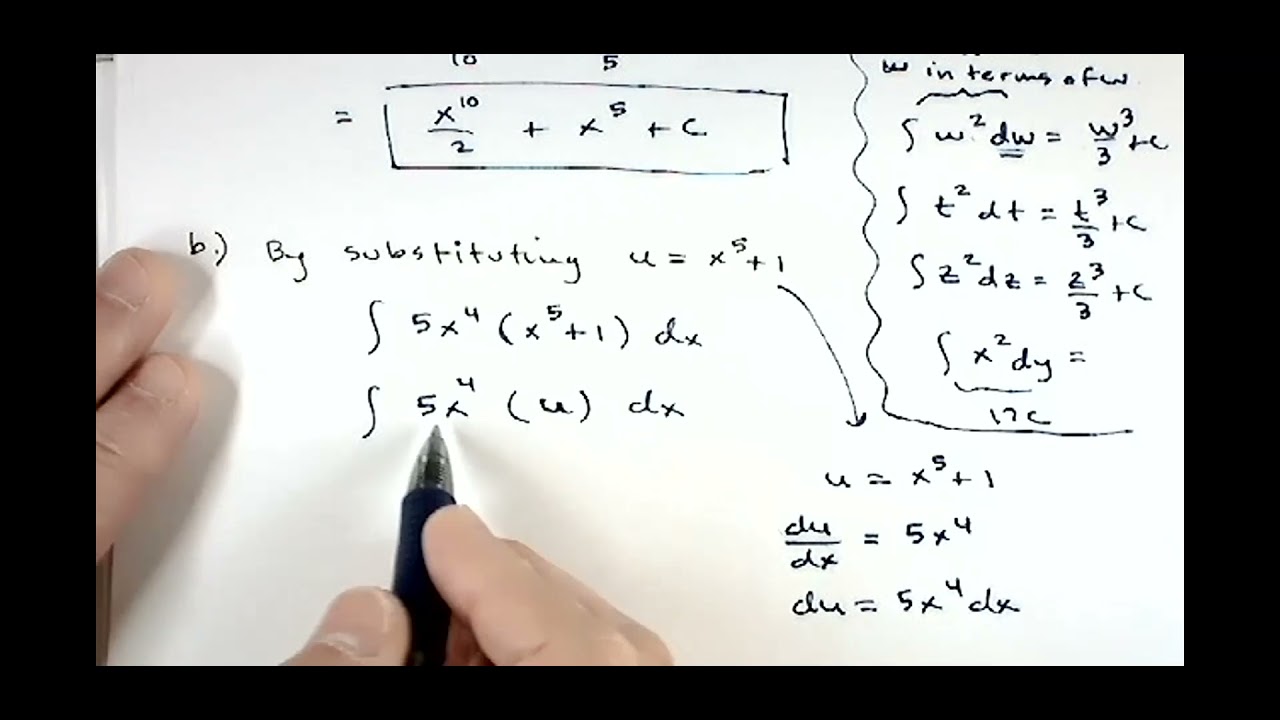 10 5
= x^10/2 + x^5 + c
b.) By substituting u = x^5 + 1
∫ 5x^4 (x^5 + 1) dx
∫ 5x^4 (u) dx
w in terms of w
∫ w^2 dw = w^3/3 + c
∫ t^2 dt = t^3/3 + c
∫ z^2 dz = z^3/3 + c
∫ x^2 dy =
u = x^5 + 1
du/dx = 5x^4
du = 5x^4 dx